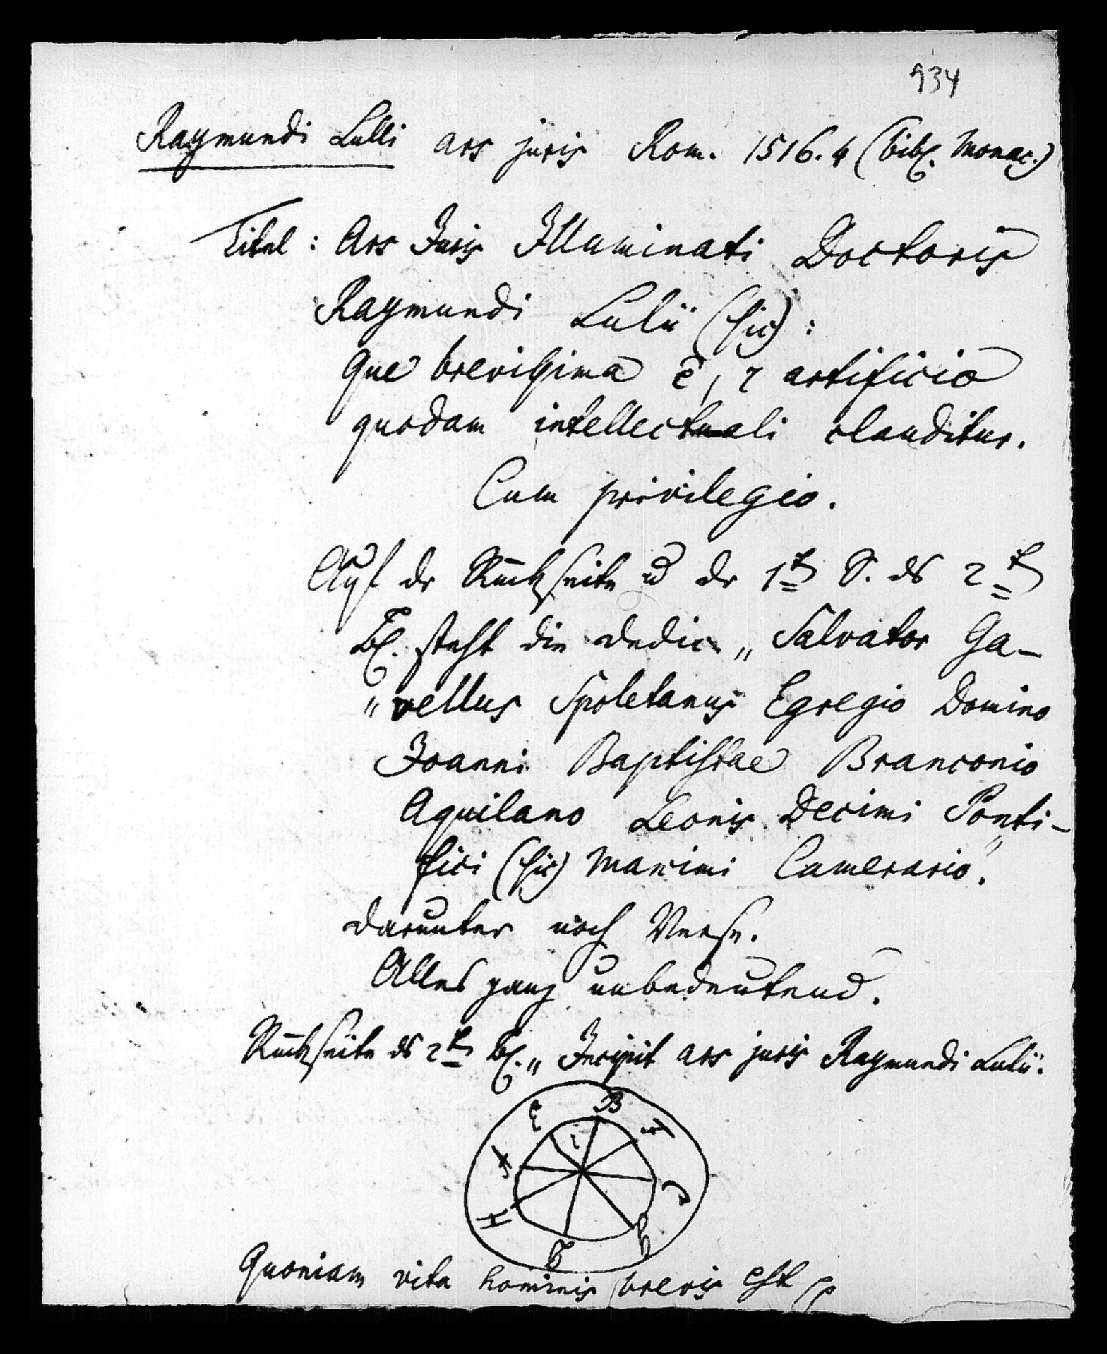 934
Raymundi Lulli ars juris Rom. 1516. 4 (bibl. Monac.)
Titel: Ars Juris Illuminati Doctoris
Raymundi Lulii (sic):
Que brevissima ē, ⁊ artificio
quodam intellectuali clauditur.
Cum privilegio.
Auf der Rückseite u der 1ten S. des 2ten
Bl. steht die dedic. „Salvator Ga-
„vellus Spoletanus Egregio Domino
Joanni Baptistae Branconio
Aquilano Leonis Decimi Ponti-
fici (sic) Maximi Camerario“.
darunter noch Verse.
Alles ganz unbedeutend.
Rückseite des 2ten Bl. „Incipit ars juris Raymundi Lulii.
E B F
C
H
Quoniam vita hominis brevis est